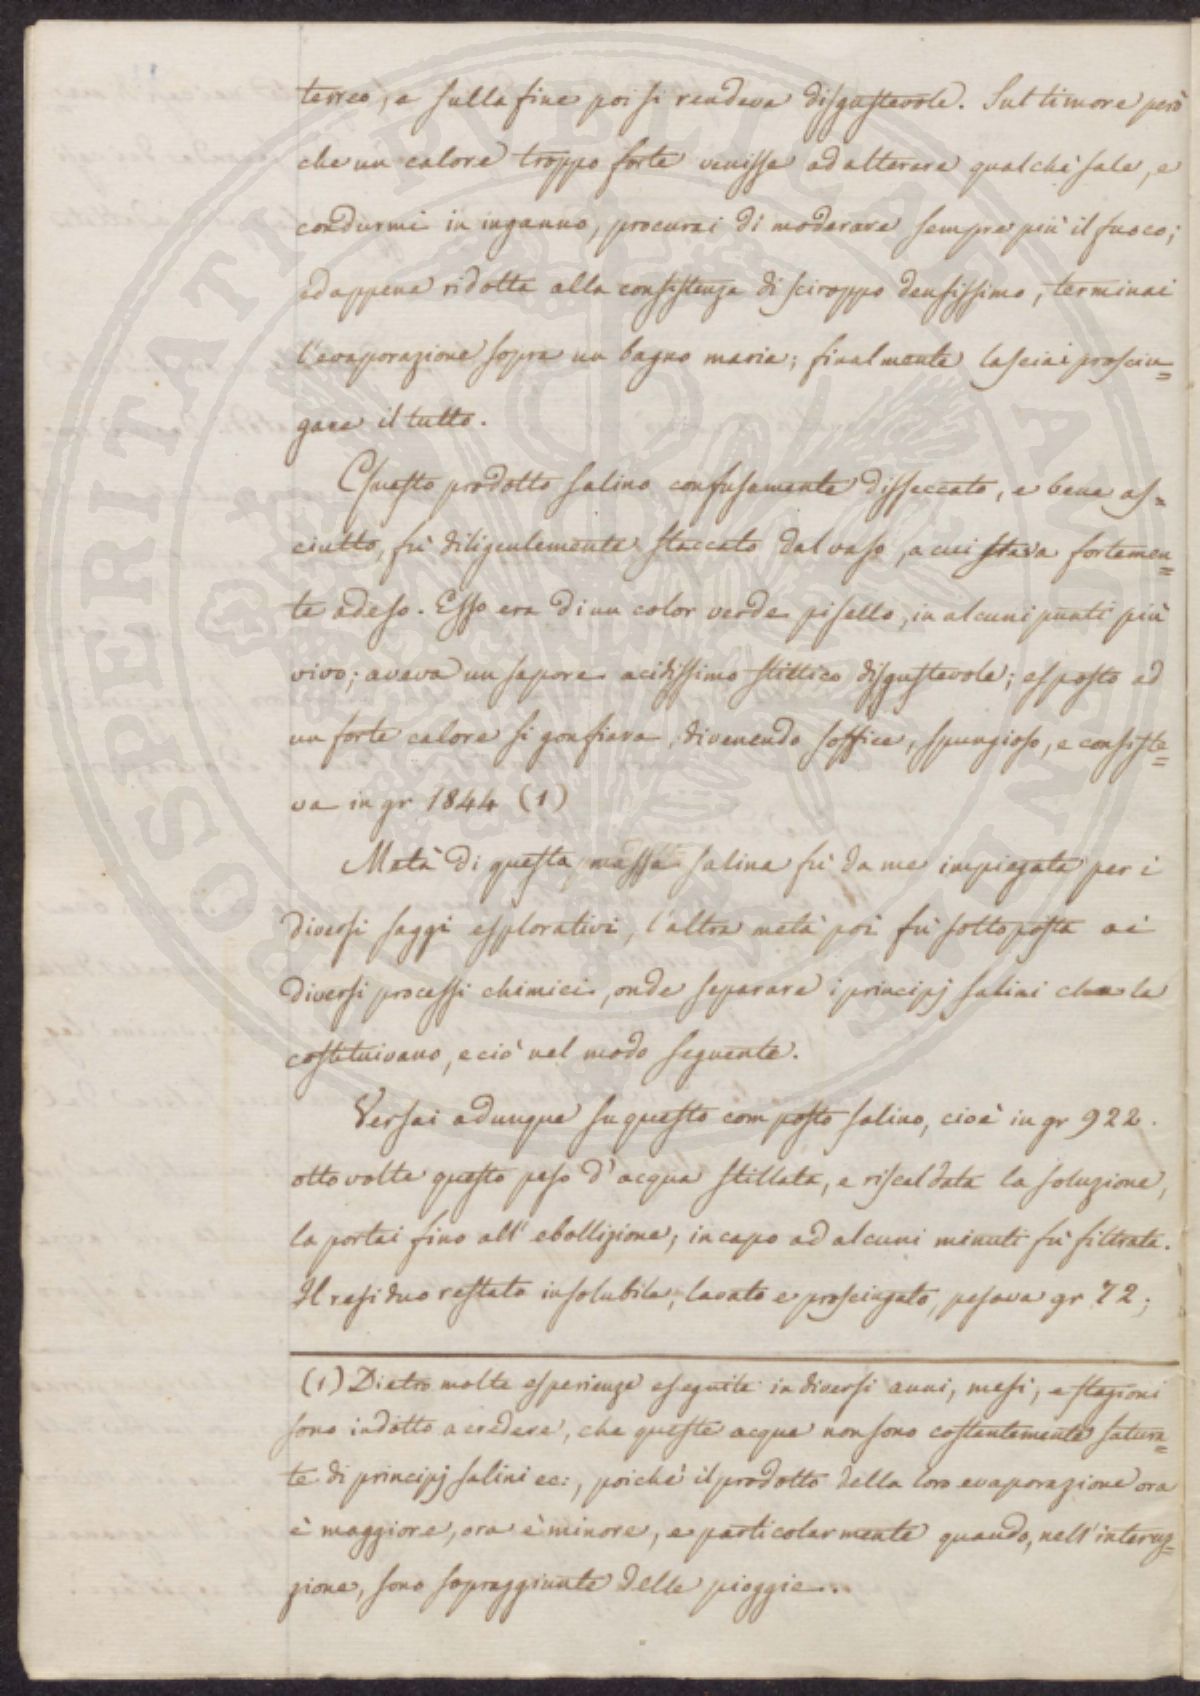 terreo, e sulla fine poi si rendeva disgustevole. Sul timore però
che un calore troppo forte venisse ad alterare qualche sale, e
condurmi in inganno, procurai di moderare sempre più il fuoco;
ed appena ridotta alla consistenza di sciroppo densissimo, terminai
l'evaporazione sopra un bagno maria; finalmente lasciai prosciu=
gare il tutto.
Questo prodotto salino confusamente disseccato, e bene as=
ciutto, fù diligentemente staccato dal vaso, a cui stava fortemen=
te adeso. Esso era di un color verde pisello, in alcuni punti più
vivo; aveva un sapore acidissimo stittico disgustevole; esposto ad
un forte calore si gonfiava, divenendo soffice, spungioso, e consiste=
va in gr 1844 (1)
Metà di questa massa salina fù da me impiegata per i
diversi saggi esplorativi, l'altra metà poi fù sottoposta ai
diversi processi chimici, onde separare i principj salini che la
costituivano, e ciò nel modo seguente.
Versai adunque su questo composto salino, cioè in gr 922.
otto volte questo peso d'acqua stillata, e riscaldata la soluzione,
la portai fino all'ebollizione; in capo ad alcuni minuti fù filtrata.
Il residuo restato insolubile, lavato e prosciugato, pesava gr 72;
(1) Dietro molte esperienze eseguite in diversi anni, mesi, e stagioni
sono indotto a credere, che queste acque non sono costantemente satura=
te di principj salini ec:, poichè il prodotto della loro evaporazione ora
è maggiore, ora è minore, e particolarmente quando, nell'interuz=
zione, sono sopraggiunte delle pioggie..
PROSPERITATI PUBLICAE AUGENDAE